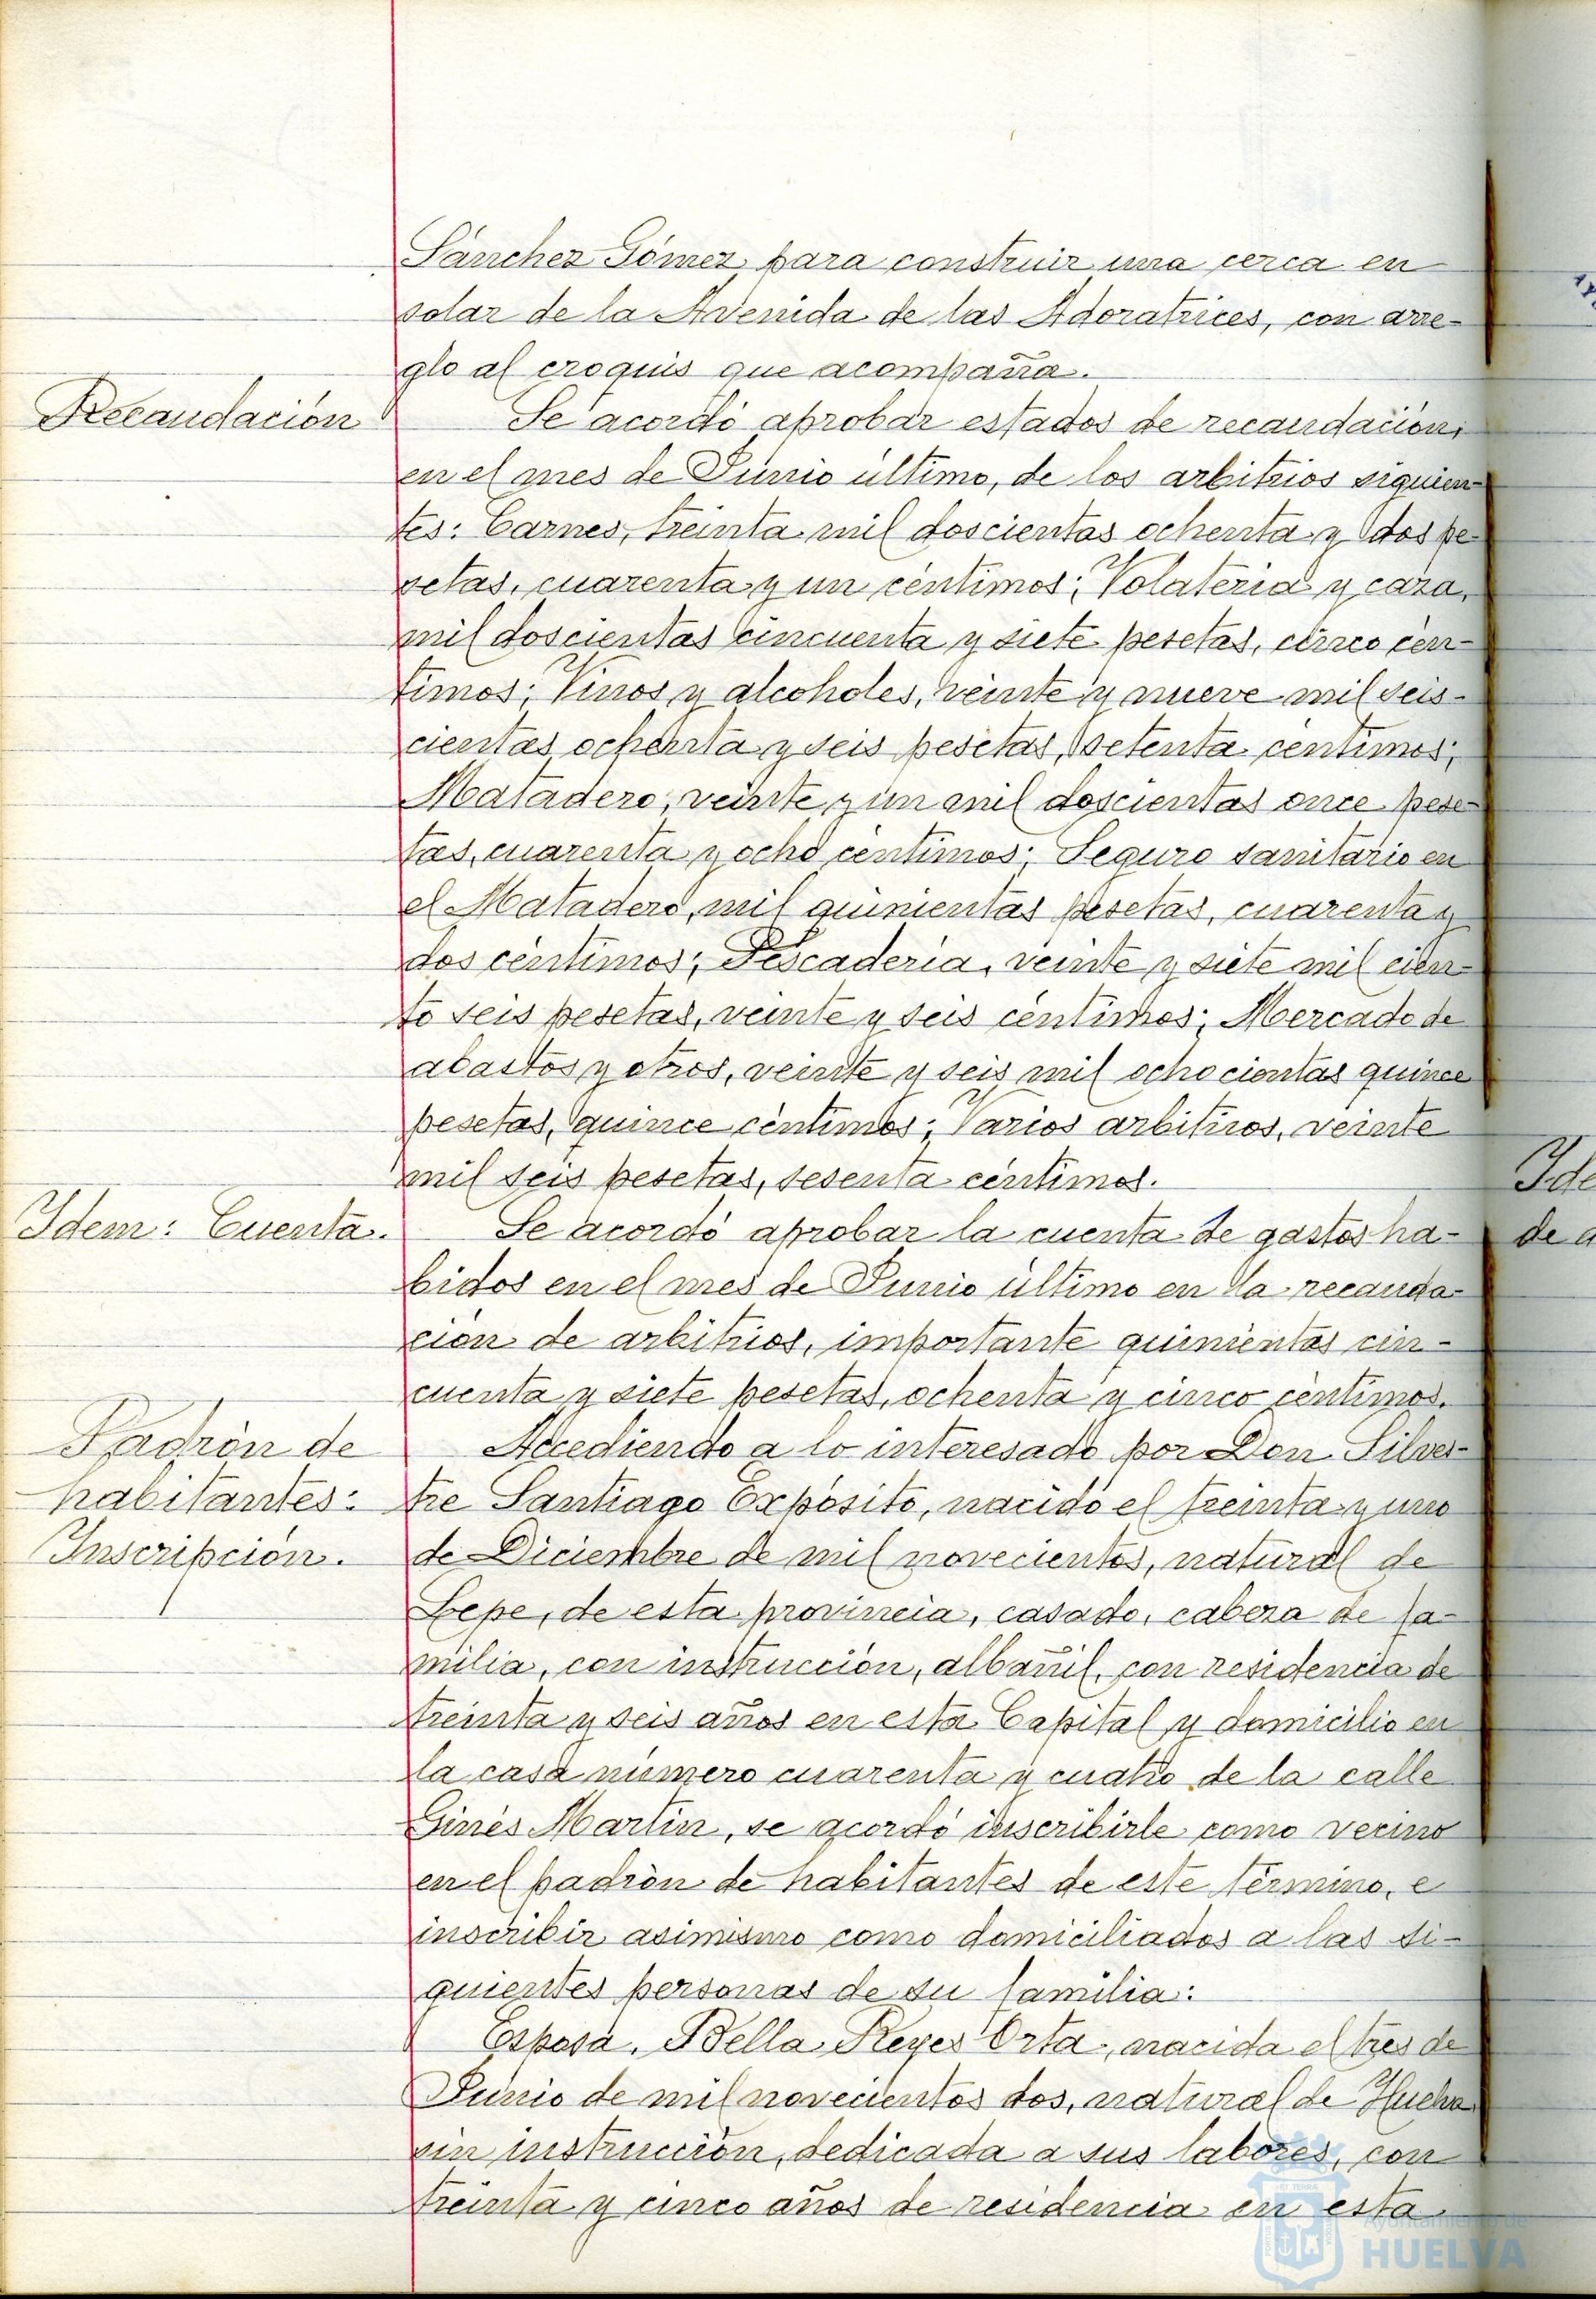 Sánchez Gómez para construir una cerca en
solar de la Avenida de las Adoratrices, con arre-
glo al croquis que acompaña.
Recaudación
Se acordó aprobar estados de recaudación,
en el mes de Junio último, de los arbitrios siguien-
tes: Carnes, treinta mil doscientas ochenta y dos pe-
setas, cuarenta y un céntimos; Volatería y caza,
mil doscientas cincuenta y siete pesetas, cinco cén-
timos; Vinos y alcoholes, veinte y nueve mil seis-
cientas ochenta y seis pesetas, setenta centimos;
Matadero, veinte y un mil doscientas once pese-
tas, cuarenta y ocho centimos; Seguro sanitario en
el Matadero, mil quinientas pesetas, cuarenta y
dos céntimos; Pescadería, veinte y siete mil cien-
to seis pesetas, veinte y seis céntimos; Mercado de
abastos y otros, veinte y seis mil ochocientas quince
pesetas, quince céntimos; Varios arbitrios, veinte
mil seis pesetas, sesenta céntimos.
Idem: Cuenta.
Se acordó aprobar la cuenta de gastos ha-
bidos en el mes de Junio último en la recauda-
ción de arbitrios, importante quinientas cin-
cuenta y siete pesetas, ochenta y cinco céntimos.
Padrón de
habitantes:
Inscripción.
Accediendo a lo interesado por Don Silves-
tre Santiago Expósito, nacido el treinta y uno
de Diciembre de mil novecientos, natural de
Lepe, de esta provincia, casado, cabeza de fa-
milia, con instrucción, albañil, con residencia de
treinta y seis años en esta Capital y domicilio en
la casa número cuarenta y cuatro de la calle
Ginés Martín, se acordó inscribirle como vecino
en el padrón de habitantes de este término, e
inscribir asimismo como domiciliados a las si-
guientes personas de su familia:
Esposa, Bella Reyes Orta, nacida el tres de
Junio de mil novecientos dos, natural de Huelva
sin instrucción, dedicada a sus labores, con
treinta y cinco años de residencia en esta
Ide
de a
Ayuntamiento de
HUELVA